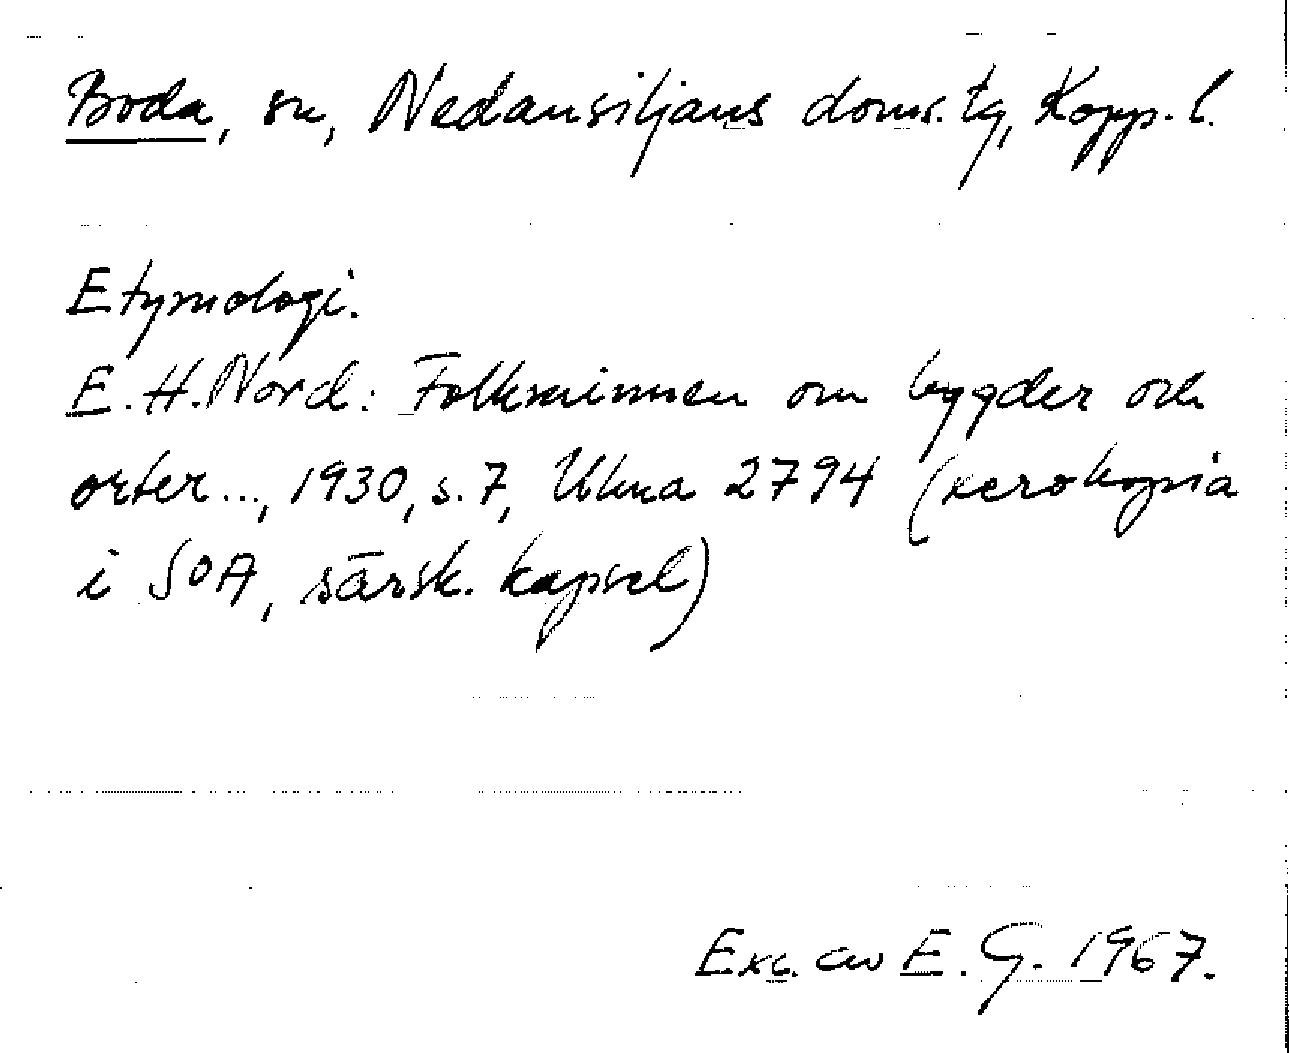 Boda, sn, Nedansiljans doms. tg, Kopp. l.
Etymologi.
E. H. Nord: Folkminnen om bygder och
orter..., 1930, s. 7, Ulma 2794 (xerokopia
i SOA, särsk. kapsel)
Exc. av E. G. 1967.